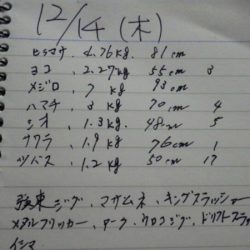 12/14(木)
ヒラマサ 4.76kg 81cm
ヨコ 2.27kg 55cm 3
メジロ 7kg 93cm
ハマチ 3kg 70cm 4
シオ 1.3kg 48cm 5
サワラ 1.9kg 76cm 1
ツバス 1.2kg 50cm 17
弥東ジグ、マサムネ、キングスラッシャー
メタルフリッカー、アーク、ウロコジグ、ドリフト